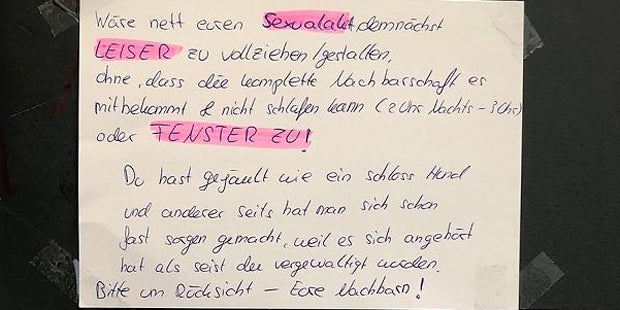 Wäre nett euren Sexualakt demnächst
LEISER zu vollziehen/gestalten,
ohne, dass die komplette Nachbarschaft es
mitbekommt & nicht schlafen kann (2 Uhr Nachts - 3 Uhr)
oder FENSTER ZU!
Du hast gejault wie ein schloss Hund
und anderer seits hat man sich schon
fast sorgen gemacht, weil es sich angehört
hat als seist du vergewaltigt worden.
Bitte um Rücksicht – Eure Nachbarn!